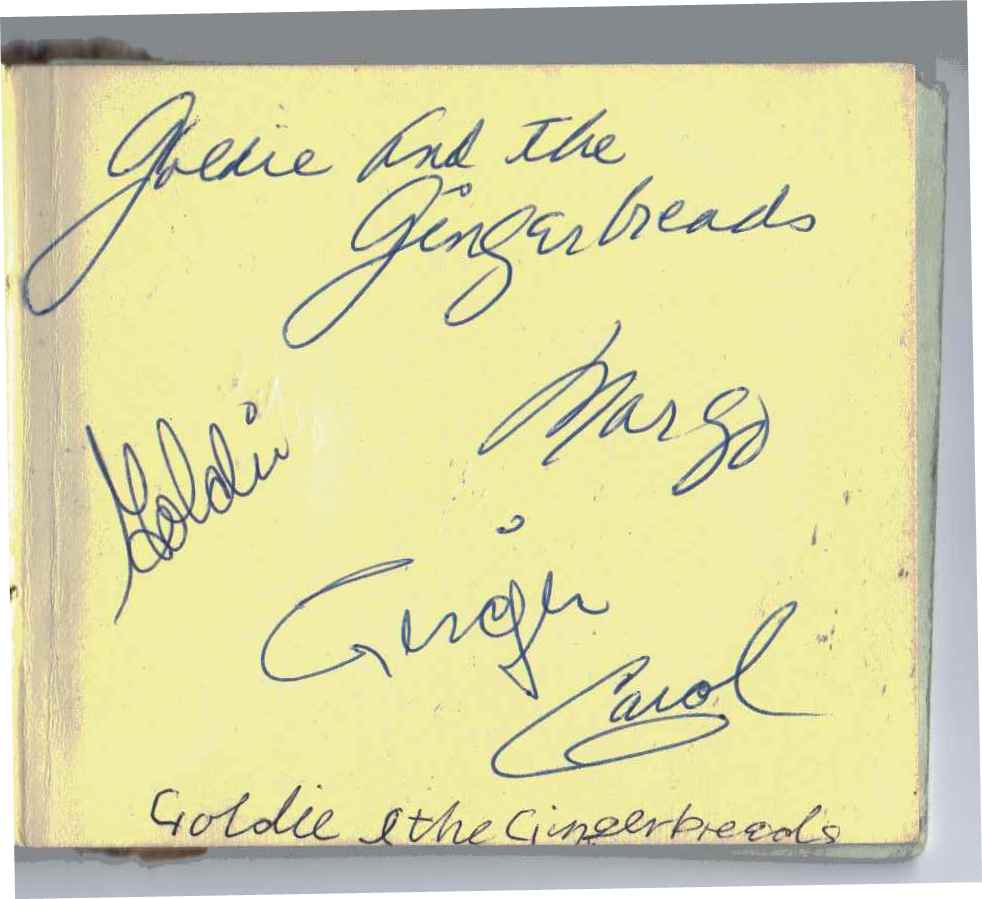 Goldie and the
Gingerbreads
Margo
Goldie
Ginger
Carol
Goldie & the Gingerbreads